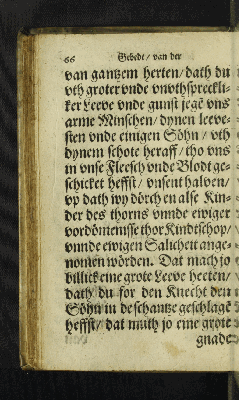 66 Gebedt / van der
van gantzem herten / dath du
vth groter vnde vnvthspreckli-
ker Leeve vnde gunst jegē vns
arme Minschen / dynen leeve-
sten vnde einigen Söhn / vth
dynem schote heraff / tho vns
in vnse Fleesch vnde Blodt ge-
schicket heffst / vnsent halven /
vp dath wy dörch en alse Kin-
der des thorns vnnde ewiger
vordömenisse thor Kindtschop /
vnnde ewigen Salicheit ange-
nomen wörden. Dat mach jo
billick eine grote Leeve heeten /
dath du for den Knecht den
Söhn in de schantze geschlagē
heffst / dat muth jo eine grote
gnade